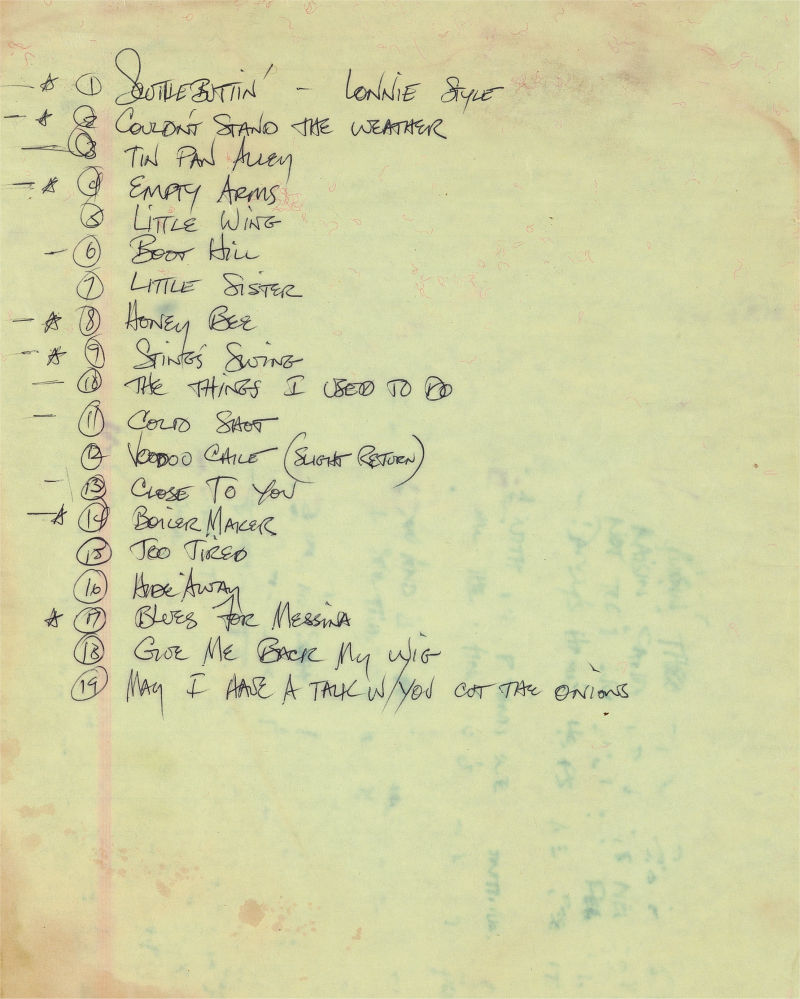 — ☆ ① SCUTTLEBUTTIN' - LONNIE STYLE
— ☆ ② COULDN'T STAND THE WEATHER
— ③ TIN PAN ALLEY
— ☆ ④ EMPTY ARMS
⑤ LITTLE WING
— ⑥ BOOT HILL
⑦ LITTLE SISTER
— ☆ ⑧ HONEY BEE
— ☆ ⑨ STING'S SWING
— ⑩ THE THINGS I USED TO DO
— ⑪ COLD SHOT
⑫ VOODOO CHILE (SLIGHT RETURN)
— ⑬ CLOSE TO YOU
— ☆ ⑭ BOILER MAKER
⑮ TOO TIRED
⑯ HIDE AWAY
☆ ⑰ BLUES FOR MESSINA
⑱ GIVE ME BACK MY WIG
⑲ MAY I HAVE A TALK W/YOU CUT THE ONIONS